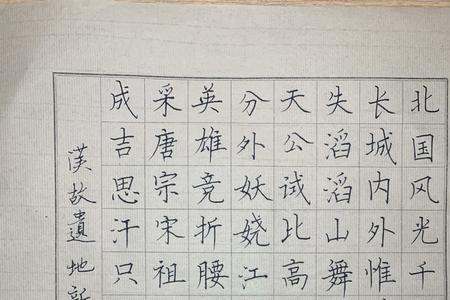 北国风光千
长城内外惟
失滔滔山舞
天公试比高
分外妖娆江
英雄竞折腰
采唐宗宋祖
成吉思汗只
漢故遺地新